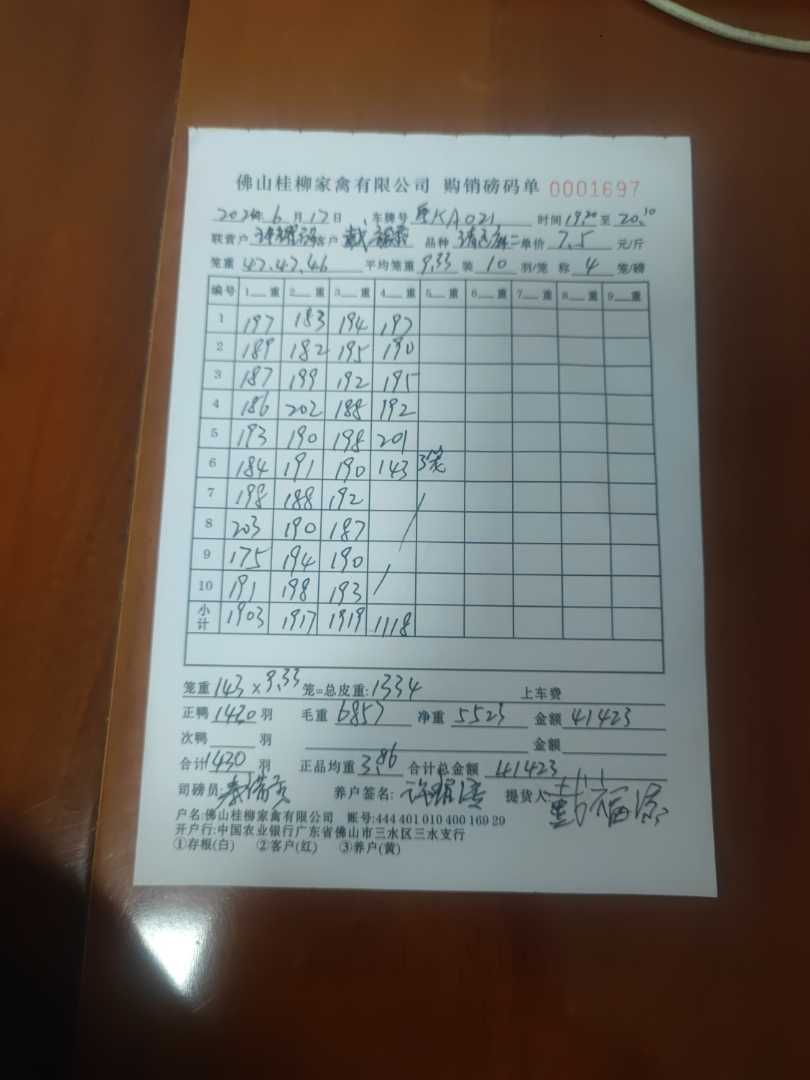 佛山桂柳家禽有限公司 购销磅码单 0001697
2024年6月12日 车牌号 KA021 时间19.20至20.10
联营户 客户 品种 单价 7.5 元/斤
笼重 47.47.46 平均笼重 9.33 装 10 羽/笼 称 4 笼/磅
编号 1 重 2 重 3 重 4 重 5 重 6 重 7 重 8 重 9 重
1 197 183 194 197
2 189 182 195 190
3 187 199 192 195
4 186 202 188 192
5 193 190 198 201
6 184 191 190 143 3笼
7 198 188 192
8 203 190 187
9 175 194 190
10 191 198 193
小计 1903 1917 1919 1118
笼重 143 × 9.33 笼=总皮重: 1334 上车费
正鸭 1430 羽 毛重 6857 净重 5523 金额 41423
次鸭 羽 金额
合计 1430 羽 正品均重 3.86 合计总金额 41423
司磅员: 养户签名: 提货人
户名:佛山桂柳家禽有限公司 账号:444 401 010 400 169 29
开户行:中国农业银行广东省佛山市三水区三水支行
①存根(白) ②客户(红) ③养户(黄)